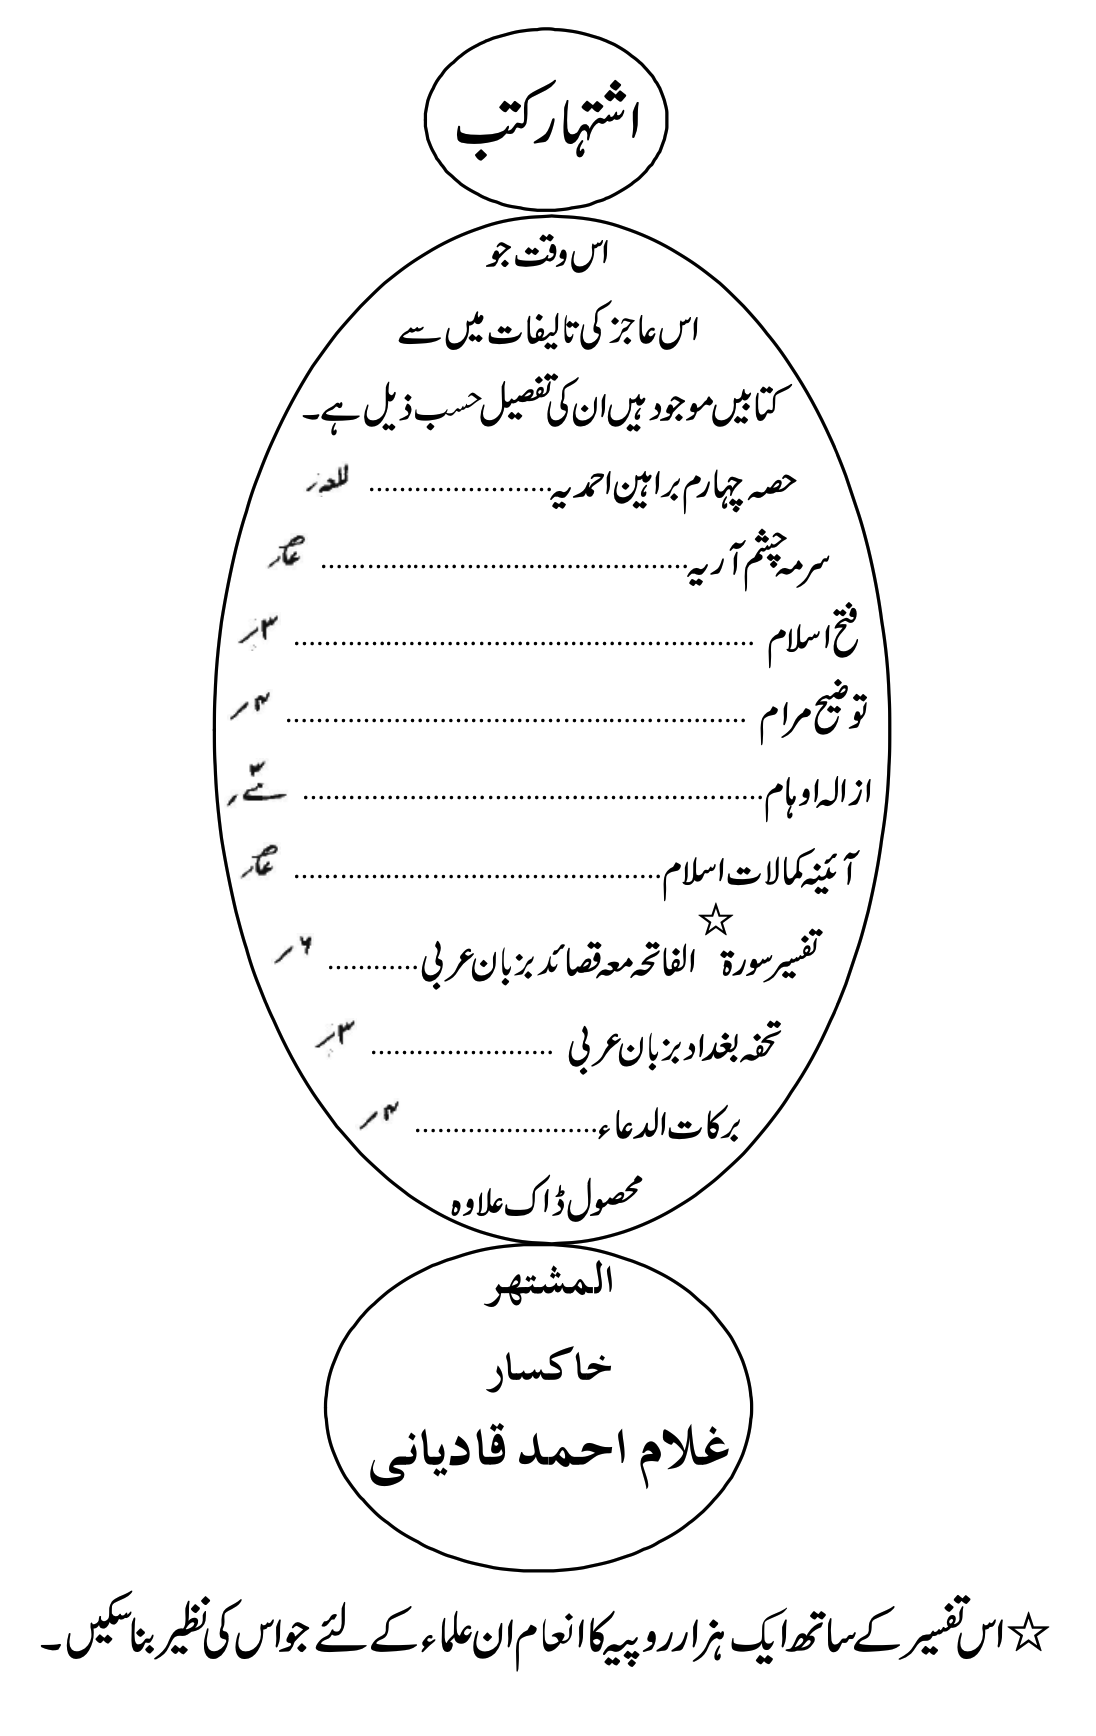 اشتہار کتب
اس وقت جو
اس عاجز کی تالیفات میں سے
کتابیں موجود ہیں ان کی تفصیل حسب ذیل ہے۔
حصہ چہارم براہین احمدیہ ........................
سرمہ چشم آریہ ................................................
فتح اسلام ............................................................ ۳؍
توضیح مرام ............................................................ ۴؍
ازالہ اوہام ............................................................
آئینہ کمالات اسلام ................................................
تفسیر سورۃ☆ الفاتحہ معہ قصائد بزبان عربی ............ ۶؍
تحفہ بغداد بزبان عربی ........................ ۳؍
برکات الدعاء ........................ ۴؍
محصول ڈاک علاوہ
المشتھر
خاکسار
غلام احمد قادیانی
☆ اس تفسیر کے ساتھ ایک ہزار روپیہ کا انعام ان علماء کے لئے جو اس کی نظیر بنا سکیں۔